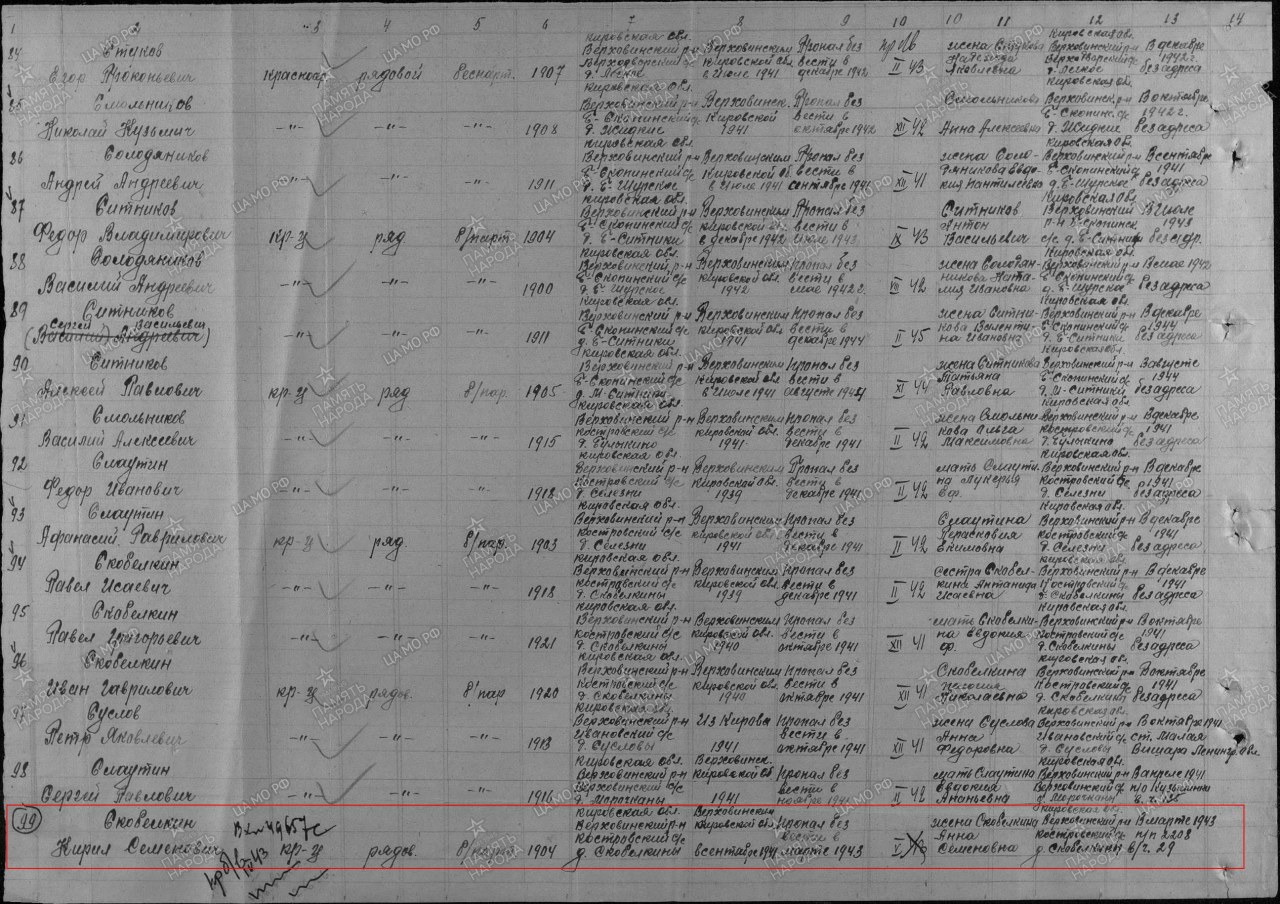 1 2 3 4 5 6 7 8 9 10 10 11 12 13 14
Кировская обл. Кировская обл.
84 Верховинский р-н Верховинским Пропал без жена Верховинский р-н В декабре
Егор Прокопьевич красноар. рядовой беспарт. 1907 Кировской обл. вести в II 43 Надежда 1942 г.
в Июле 1941 декабре 1942 Яковлевна без адреса
Кировская обл. Кировская обл.
85 Смольников Верховинский р-н Верховинск. Пропал без Смольникова Верховинск. р-н В октябре
Николай Кузьмич -"- -"- -"- 1908 Е-Скопинский Кировской вести в XII 42 Анна Алексеевна Е-Скопинск. 1942 г.
д. Жидкие 1941 октябре 1942 д. Жидкие без адреса
Кировская обл. Кировская обл.
86 Солодяников Верховинский р-н Верховинским Пропал без жена Соло- Верховинский р-н В сентябре
Андрей Андреевич -"- -"- -"- 1911 Е-Скопинский с/с Кировской об. вести в XII 41 дяникова Евдо- Е-Скопинский 1941
д. Е-Щурское в Июле 1941 сентябре 1941 кия Пантилеевна д. Е-Щурское без адреса
Кировская обл. Кировская обл.
87 Ситников Верховинский р-н Верховинским Пропал без Ситников Верховинский В Июле
Федор Владимирович кр-ц ряд б/парт. 1904 Е-Скопинский с/с Кировской об. вести в IX 43 Антон р-н Е-Скопинск. 1943
д. Е-Ситники в декабре 1942 Июле 1943 Васильевич с/с д. Е-Ситники без адр.
Кировская обл. Кировская обл.
88 Солодяников Верховинский р-н Верховинским Пропал без жена Солодян- Верховинский р-н В мае 1942
Василий Андреевич -"- -"- 1900 Е-Скопинский с/с Кировской обл. вести VIII 42 никова Ната- Е-Скопинский
д. Е-Щурское 1942 мае 1942 г. лия Ивановна д. Е-Щурское без адреса
Кировская обл. Кировская обл.
89 Ситников Верховинский р-н Верховинским Пропал без жена Ситни- Верховинский р-н В декабре
Сергей Васильевич
(Василий Андреевич) -"- -"- 1911 Е-Скопинский с/с Кировской обл. вести в II 45 кова Валенти- Е-Скопинский с/с 1944
д. Е-Ситники 1941 декабре 1944 на Ивановна д. Е-Ситники без адреса
Кировская обл. Кировская обл.
90 Ситников Верховинский р-н Верховинским Пропал без жена Ситникова Верховинский р-н В августе
Алексей Павлович кр-ц ряд б/пар. 1905 Е-Скопинский с/с Кировской обл. вести в XI 44 Татьяна Е-Скопинский с/с 1944
д. М-Ситники в Июле 1941 августе Павловна д. М-Ситники без адреса
Кировская обл. Кировская обл.
91 Смольников Верховинский р-н Верховинским Пропал без жена Смольни- Верховинский р-н В декабре
Василий Алексеевич -"- -"- -"- 1915 Костровский с/с Кировской обл. вести в II 42 кова Ольга Костровский с/с 1941
1941 декабре 1941 Максимовна без адреса
Кировская обл. Кировская обл.
92 Слаутин Верховинский р-н Верховинским Пропал без мать Слаути- Верховинский р-н В декабре
Федор Иванович -"- -"- -"- 1918 Костровский с/с Кировской обл. вести в II 42 на Лукерья Костровский с/с 1941
д. Селезни 1939 декабре 1941 д. Селезни без адреса
Кировская обл. Кировская обл.
93 Слаутин Верховинский р-н Верховинским Пропал без Слаутина Верховинский р-н В декабре
Афанасий Гаврилович кр-ц ряд б/пар. 1903 Костровский с/с Кировской обл. вести в II 42 Парасковия Костровский с/с 1941
д. Селезни 1941 декабре 1941 Екимовна д. Селезни без адреса
Кировская обл. Кировская обл.
94 Скобелкин Верховинский р-н Верховинским Пропал без сестра Скобел- Верховинский р-н В декабре
Павел Исаевич -"- -"- -"- 1918 Костровский с/с Кировской обл. вести в II 42 кина Костровский с/с 1941
д. Скобелкины 1939 декабре 1941 Исаевна д. Скобелкины без адреса
Кировская обл. Кировская обл.
95 Скобелкин Верховинский р-н Верховинским Пропал без мать Скобелки- Верховинский р-н В октябре
Павел Григорьевич -"- -"- -"- 1921 Костровский с/с Кировской обл. вести в XII 41 на Евдокия Костровский с/с 1941
д. Скобелкины 1940 октябре 1941 Ф. д. Скобелкины без адреса
Кировская обл. Кировская обл.
96 Скобелкин Верховинский р-н Верховинским Пропал без Скобелкина Верховинский р-н В октябре
Иван Гаврилович кр-ц рядов. б/пар 1920 Костровский с/с Кировской обл. вести в XII 41 Костровский с/с 1941
д. Скобелкины 1940 октябре 1941 Николаевна д. Скобелкины без адреса
Кировская обл. Кировская обл.
97 Суслов Верховинский р-н Из Кирова Пропал без жена Суслова Верховинский р-н В октябре 1941
Петр Яковлевич -"- -"- -"- 1913 Ивановский с/с вести в XII 41 Анна Ивановский с/с ст. Малая
д. Сусловы 1941 октябре 1941 Федоровна д. Сусловы Вишара Ленингр. обл.
Кировская обл. Верховинск. Кировская обл.
98 Слаутин Верховинский р-н Кировской об. Пропал без мать Слаутина Верховинский р-н В апреле 1941
Сергей Павлович -"- -"- -"- 1916 Ивановский с/с вести в II 42 Евдокия Ивановский с/с п/о Кузьминка
1941 ноябре 1941 Ананьевна в. ч. 135
Кировская обл. Верховинским Кировская обл.
99 Скобелкин Верховинский р-н Кировской об. Пропал без жена Скобелкина Верховинский р-н В марте 1943
Кирил Семенович кр-ц рядов. б/парт 1904 Костровский с/с вести в V Анна Костровский с/с п/п 2208
д. Скобелкины в сентябре 1941 марте 1943 Семеновна д. Скобелкины в/ч. 29
ПАМЯТЬ НАРОДА
ЦАМО РФ